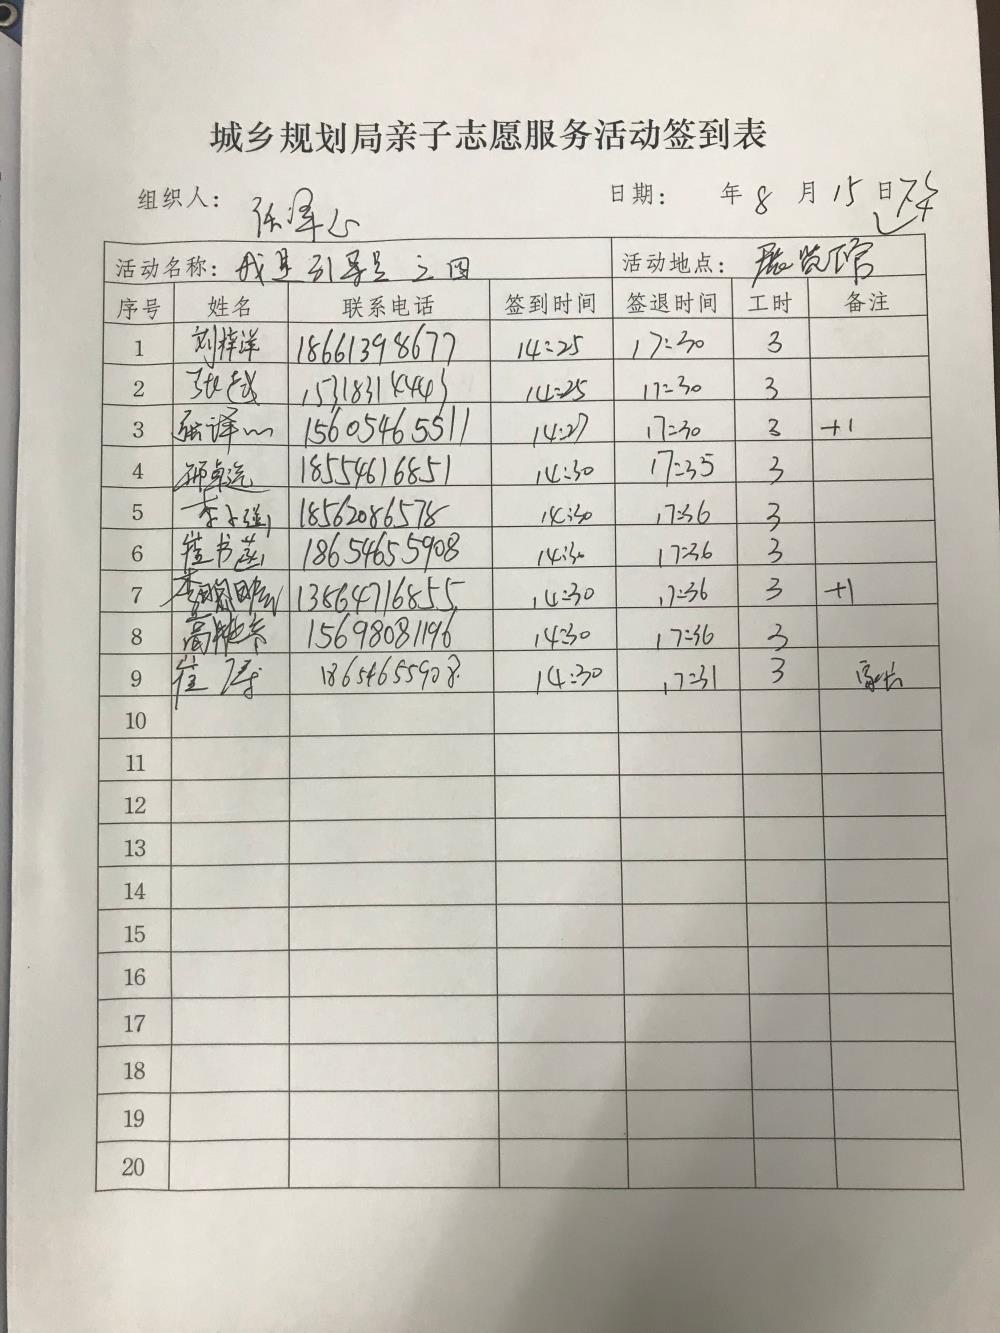 城乡规划局亲子志愿服务活动签到表
组织人： 张泽心 日期： 年 8 月 15 日 下午
活动名称： 我是引导员之四 活动地点： 展览馆
序号 姓名 联系电话 签到时间 签退时间 工时 备注
1 刘梓洋 18661398677 14:25 17:30 3
2 张越 15318314443 14:25 17:30 3
3 张译心 15605465511 14:27 17:30 3 +1
4 18554616851 14:30 17:35 3
5 李子强 18562086578 14:30 17:36 3
6 崔书菡 18654655908 14:30 17:36 3
7 13864716855 14:30 17:36 3 +1
8 15698081196 14:30 17:36 3
9 崔涛 18654655908 14:30 17:31 3 家长
10
11
12
13
14
15
16
17
18
19
20